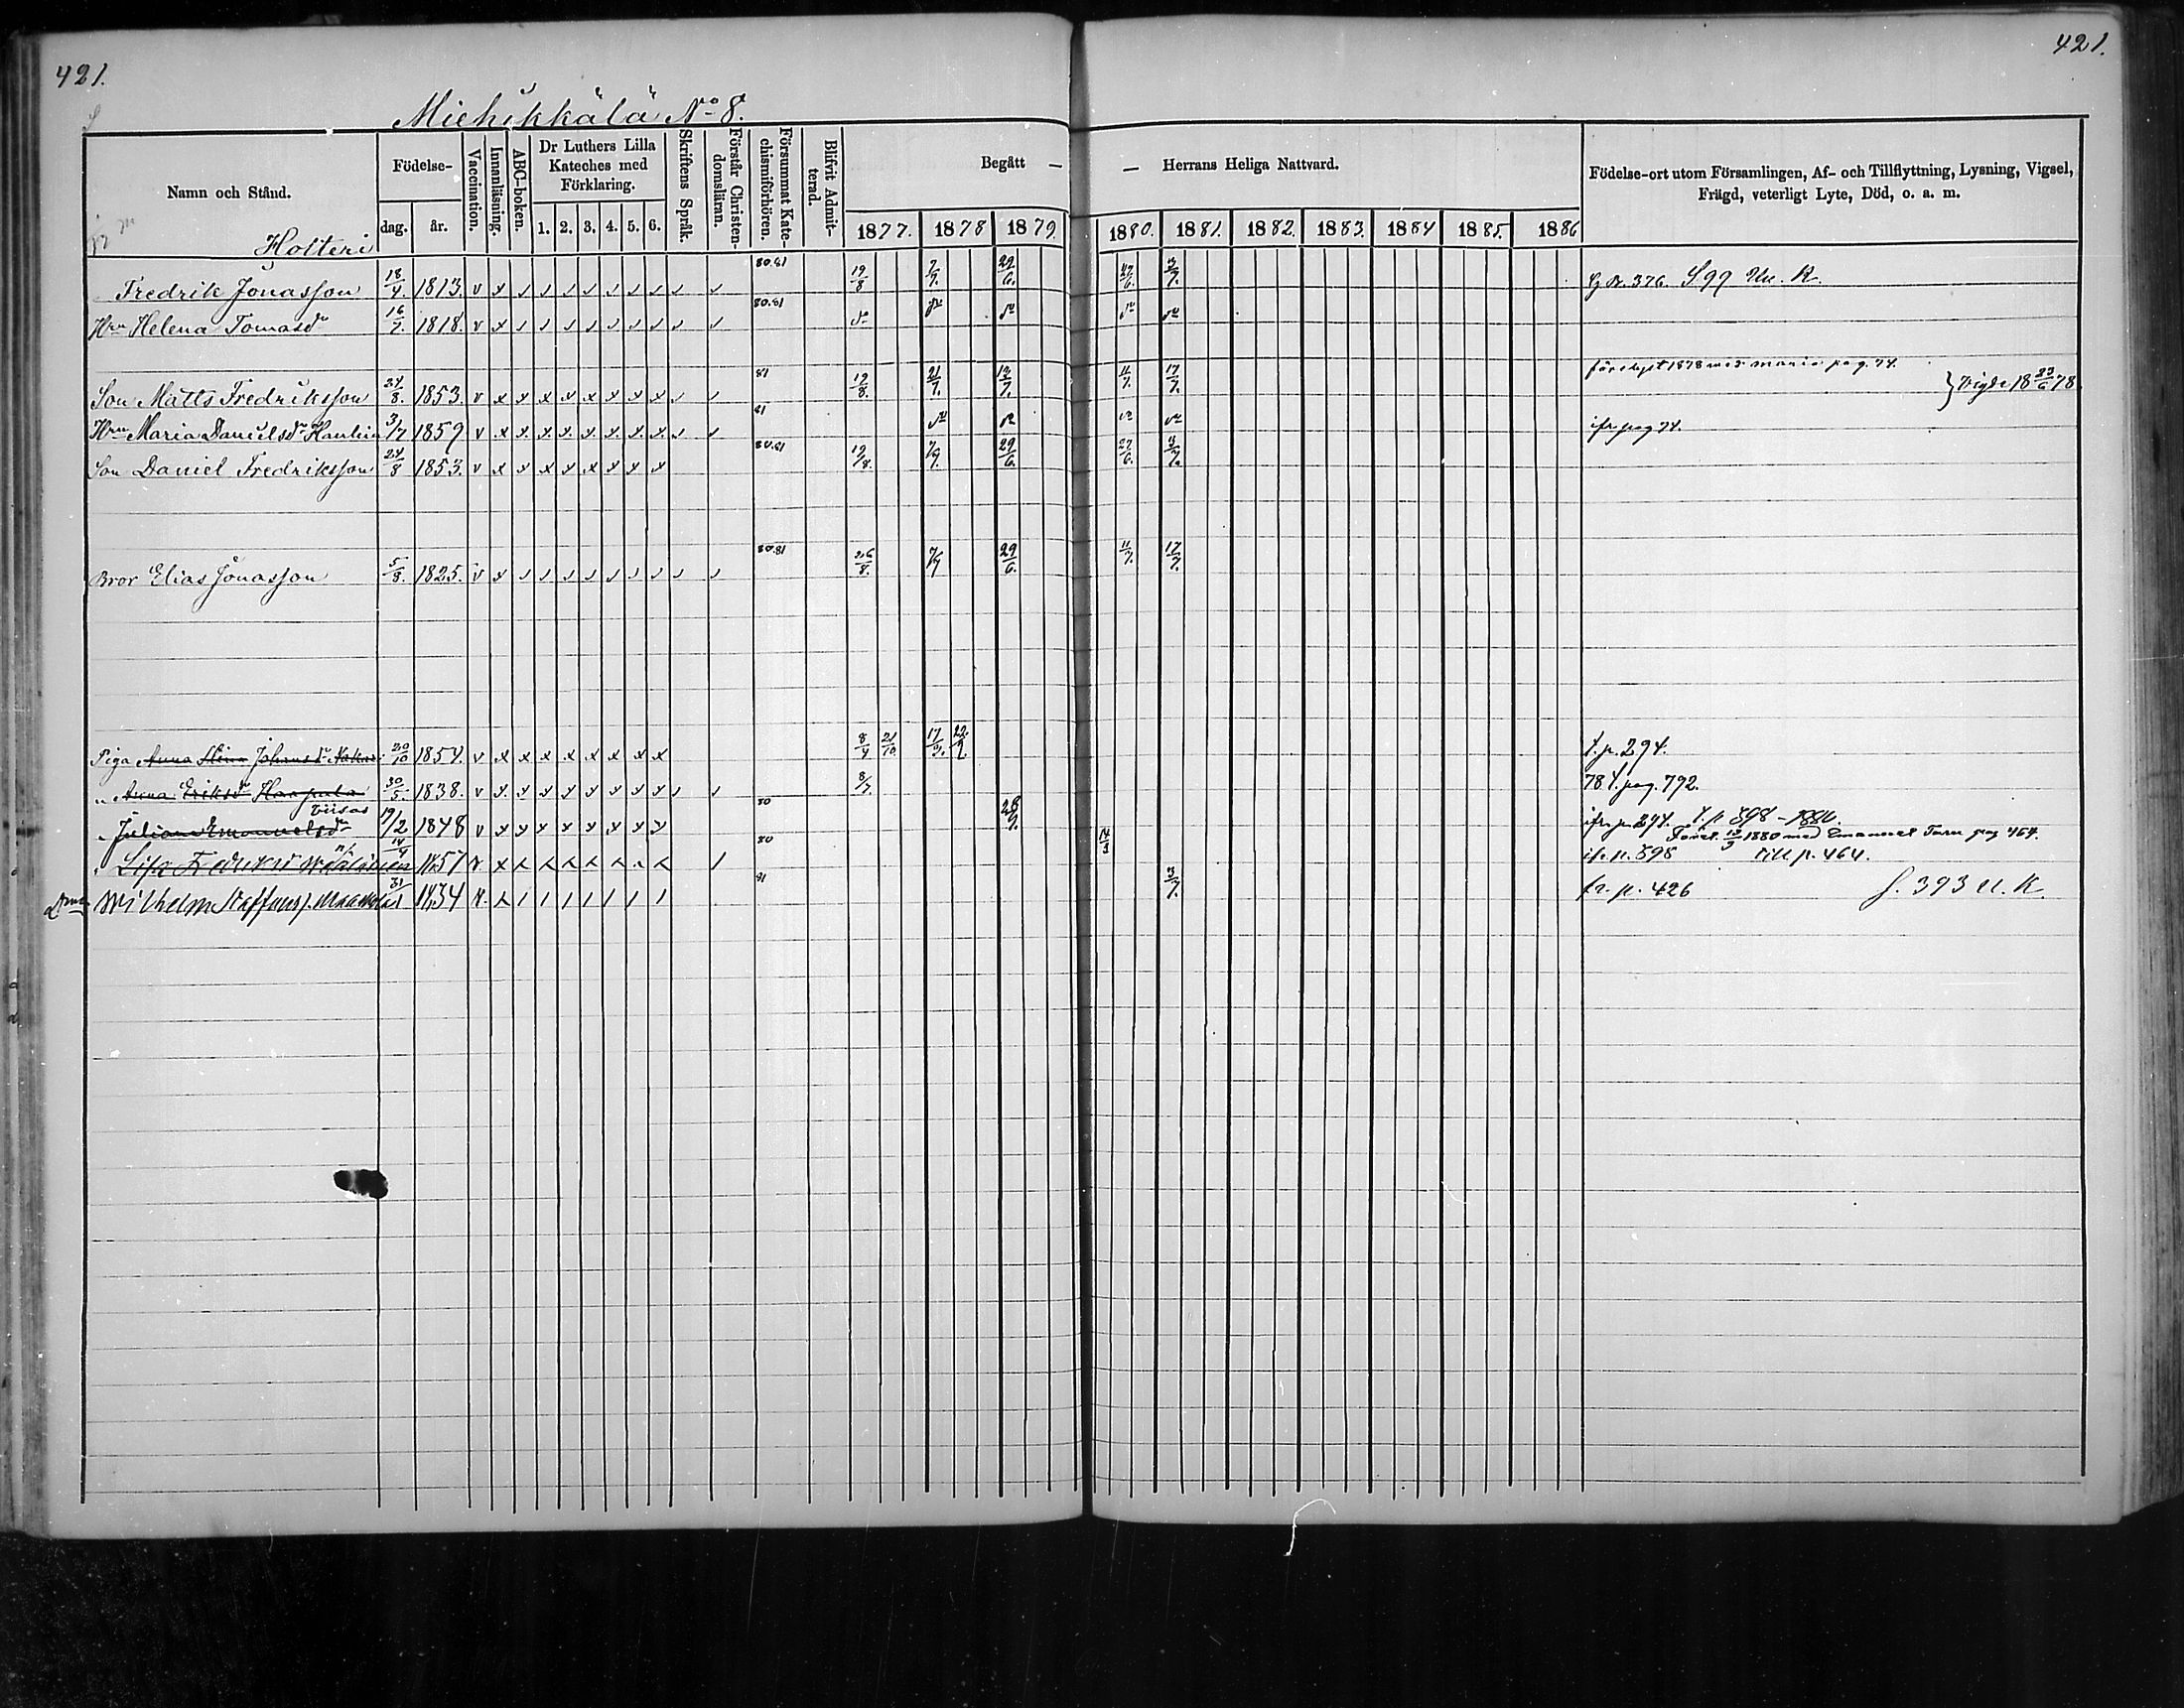 421.
421.
Miehikkälä No 8.
Namn och Stånd.
Födelse-
dag.
år.
Vaccination.
Innanläsning.
ABC-boken.
Dr Luthers Lilla
Kateches med
Förklaring.
1. 2. 3. 4. 5. 6.
Skriftens Språk.
Förstår Christen-
domsläran.
Försummat Kate-
chismiförhören.
Blifvit Admit-
terad.
Begått —
— Herrans Heliga Nattvard.
1877. 1878 1879. 1880. 1881. 1882. 1883. 1884 1885. 1886
Födelse-ort utom Församlingen, Af- och Tillflyttning, Lysning, Vigsel,
Frägd, veterligt Lyte, Död, o. a. m.
Holteri
Fredrik Jonasson 18/4. 1813. 80.81 19/8 7/7. 29/6. 27/6. 3/7. 376. S 99
Hru Helena Tomasdr 16/7 1818. 80.81
Son Matts Fredriksson 24/8. 1853. 81 19/8. 21/7. 13/7. 11/7. 17/7. 1878 med Maria pag. 74. } Vigde 18 23/6 78.
Hru Maria Danielsdr 3/7 1859 81 ifr. pag 74.
Son Daniel Fredriksson 24/8 1853. 80.81 19/8. 7/7. 29/6. 27/6. 3/7.
Bror Elias Jonasson 5/8. 1825. 80.81 26/8. 7/7 29/6. 11/7. 17/7.
Piga Anna Stina Johansdr 20/10 1854. 8/4 21/10 17/3. 22/9. t. p. 294.
" Anna Eriksdr Haapala 30/5. 1838. 8/7. 78 t. pag. 792.
" Juliana Emanuelsdr 19/2 1848 80 28/9. ifr. p. 294. t. p 898 - 1880.
" Lisa Fredriksdr 14/4 1857 80 14/3 1880 med Emanuel pag 464.
if. p. 898 till p. 464.
Wilhelm Staffanss. 31/1 1834 81 3/7. fr. p. 426 S. 393 U. K.